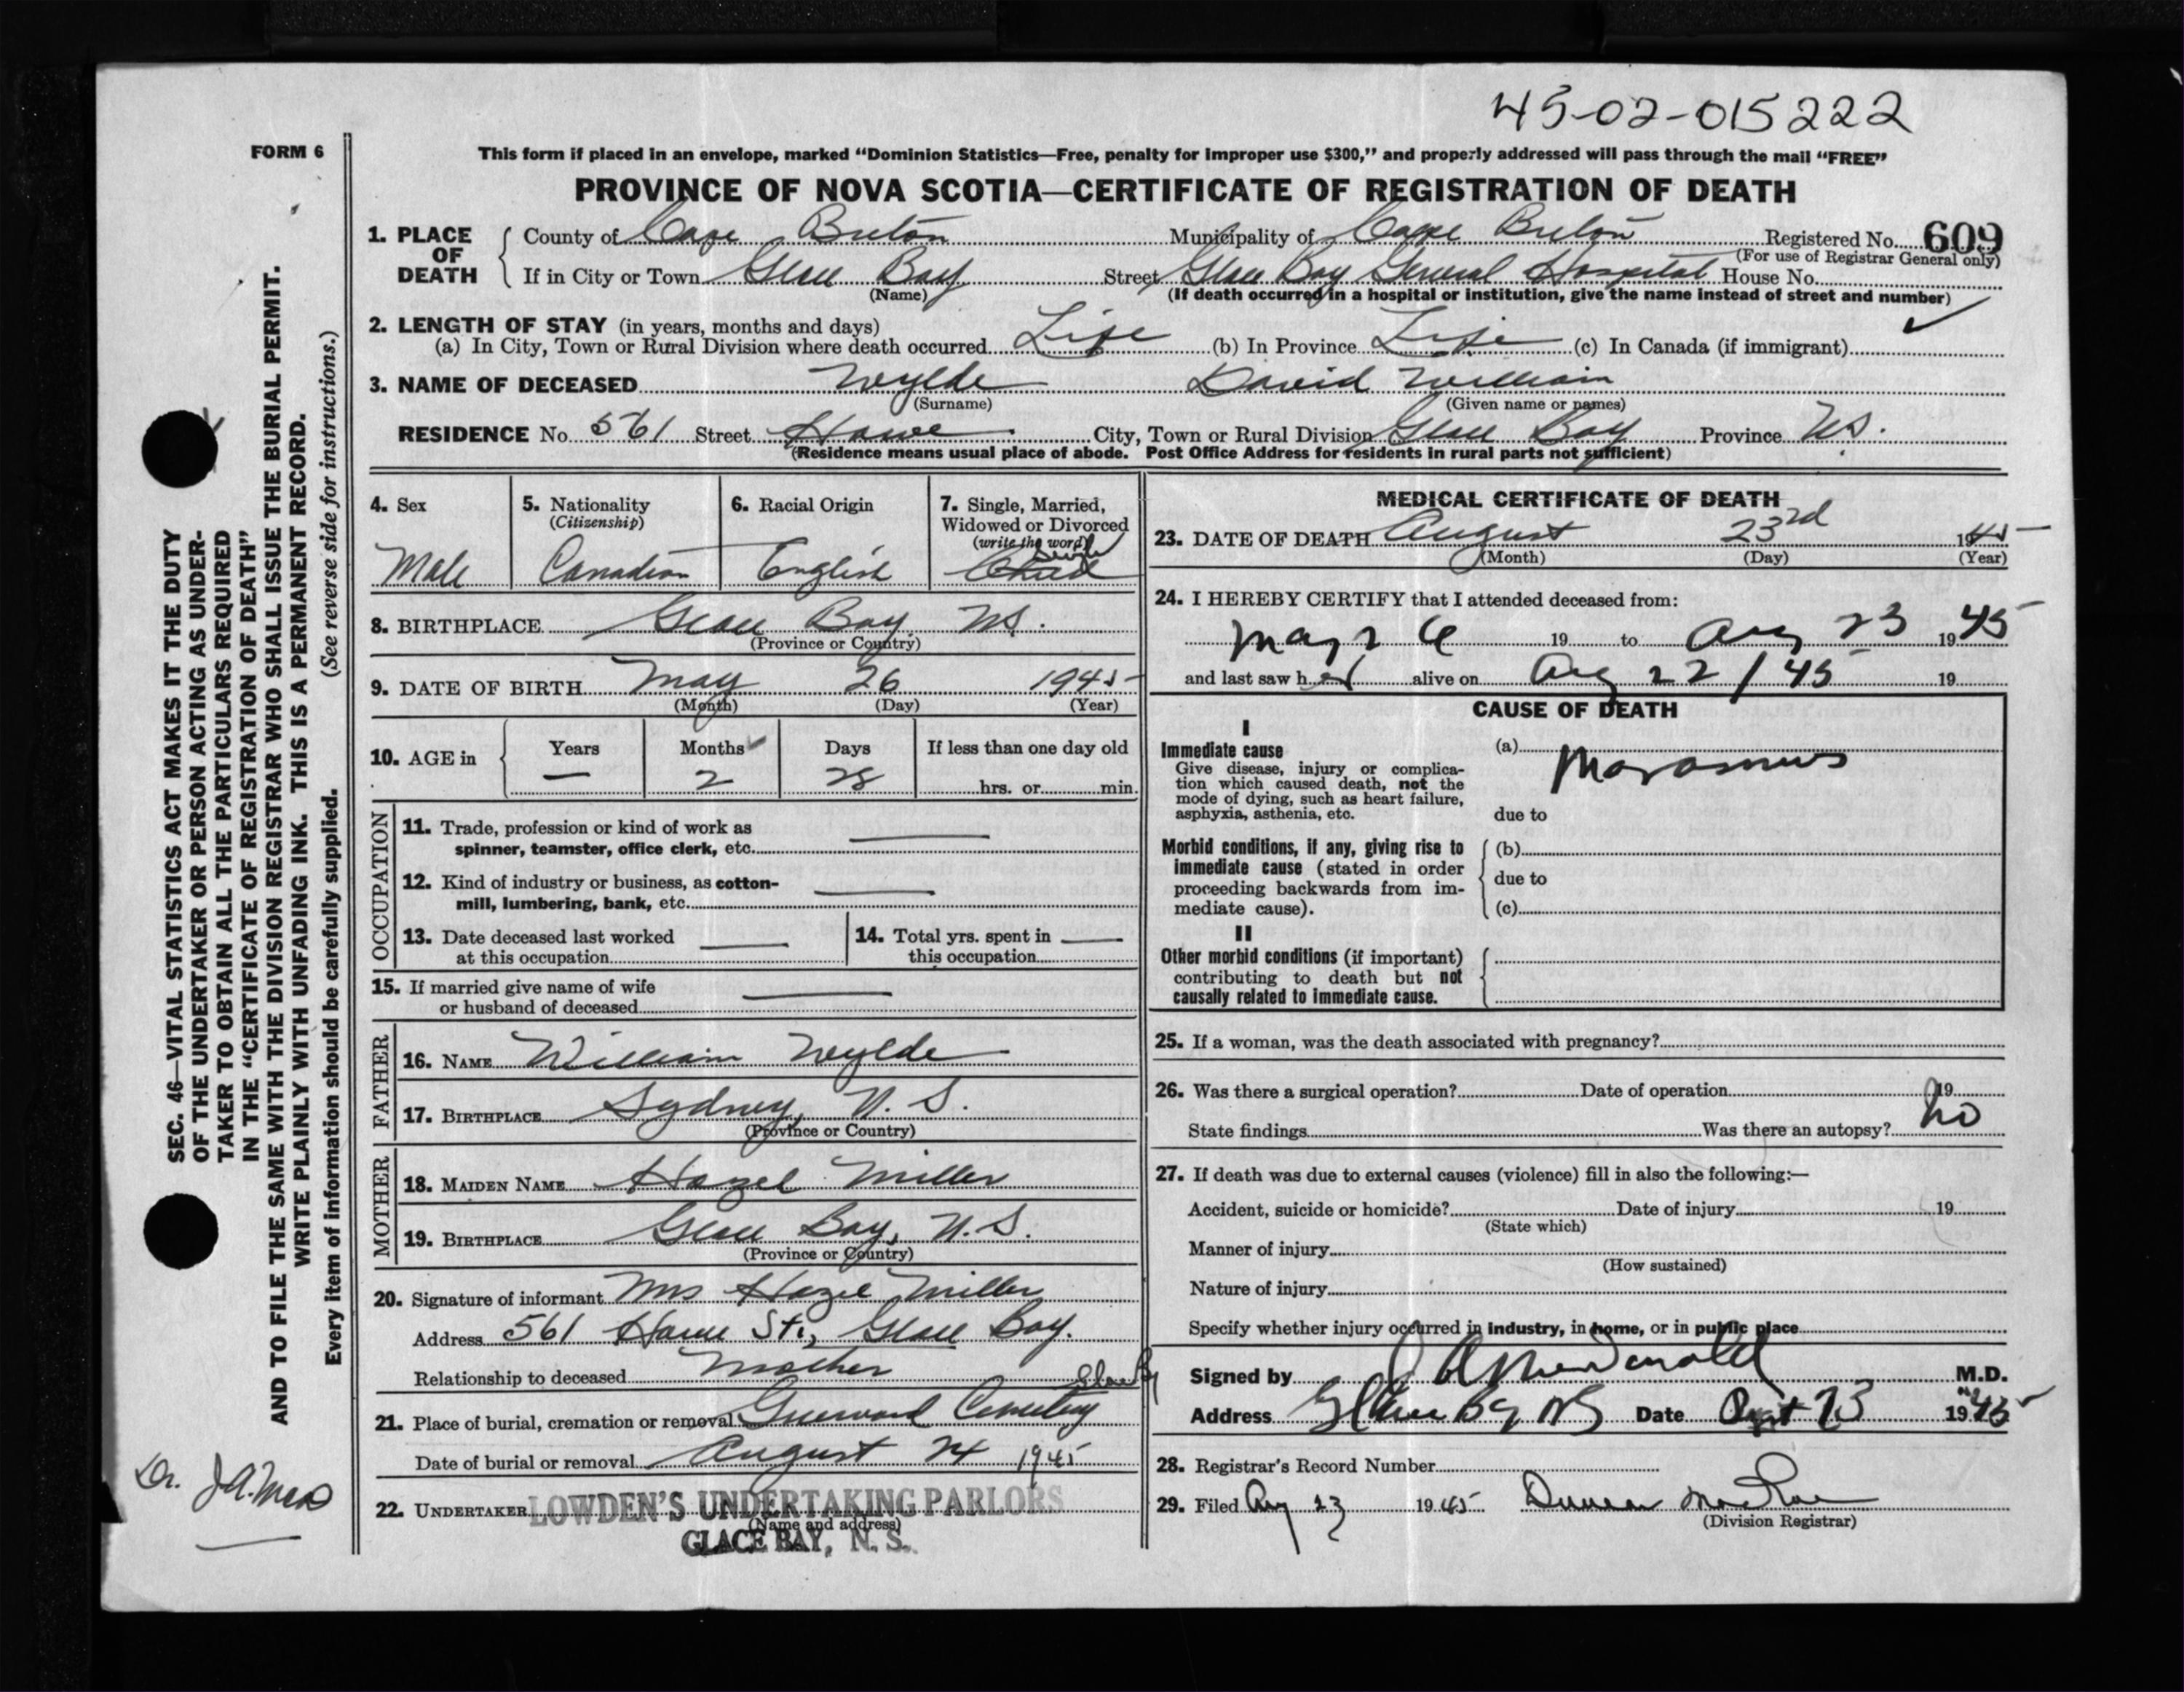 45-02-015222
FORM 6
This form if placed in an envelope, marked “Dominion Statistics—Free, penalty for improper use $300,” and properly addressed will pass through the mail “FREE”
PROVINCE OF NOVA SCOTIA—CERTIFICATE OF REGISTRATION OF DEATH
1. PLACE OF DEATH County of Cape Breton Municipality of Cape Breton Registered No. 609
(For use of Registrar General only)
If in City or Town Glace Bay Street Glace Bay General Hospital House No.
(Name) (If death occurred in a hospital or institution, give the name instead of street and number)
2. LENGTH OF STAY (in years, months and days)
(a) In City, Town or Rural Division where death occurred Life (b) In Province Life (c) In Canada (if immigrant)
3. NAME OF DECEASED Wylde David William
(Surname) (Given name or names)
RESIDENCE No. 561 Street Howe City, Town or Rural Division Glace Bay Province N.S.
(Residence means usual place of abode. Post Office Address for residents in rural parts not sufficient)
4. Sex 5. Nationality (Citizenship) 6. Racial Origin 7. Single, Married, Widowed or Divorced (write the word)
Male Canadian English Child Single
8. BIRTHPLACE Glace Bay N.S.
(Province or Country)
9. DATE OF BIRTH May 26 1945
(Month) (Day) (Year)
10. AGE in Years Months Days If less than one day old
— 2 28 hrs. or min.
OCCUPATION
11. Trade, profession or kind of work as
spinner, teamster, office clerk, etc. —
12. Kind of industry or business, as cotton-
mill, lumbering, bank, etc. —
13. Date deceased last worked at this occupation — 14. Total yrs. spent in this occupation —
15. If married give name of wife
or husband of deceased —
FATHER
16. NAME William Wylde
17. BIRTHPLACE Sydney, N.S.
(Province or Country)
MOTHER
18. MAIDEN NAME Hazel Miller
19. BIRTHPLACE Glace Bay, N.S.
(Province or Country)
20. Signature of informant Mrs Hazel Miller
Address 561 Howe St., Glace Bay.
Relationship to deceased Mother
Glace By
21. Place of burial, cremation or removal Greenwood Cemetery
Date of burial or removal August 24 1945
22. UNDERTAKER LOWDEN'S UNDERTAKING PARLORS
(Name and address)
GLACE BAY, N. S.
MEDICAL CERTIFICATE OF DEATH
23. DATE OF DEATH August 23rd 1945
(Month) (Day) (Year)
24. I HEREBY CERTIFY that I attended deceased from:
May 26 19 to Aug 23 1945
and last saw h alive on Aug 22/45 19
CAUSE OF DEATH
I
Immediate cause
Give disease, injury or complica-
tion which caused death, not the
mode of dying, such as heart failure,
asphyxia, asthenia, etc.
(a) Marasmus
due to
Morbid conditions, if any, giving rise to
immediate cause (stated in order
proceeding backwards from im-
mediate cause).
(b)
due to
(c)
II
Other morbid conditions (if important)
contributing to death but not
causally related to immediate cause.
25. If a woman, was the death associated with pregnancy?
26. Was there a surgical operation? Date of operation 19
State findings Was there an autopsy? No
27. If death was due to external causes (violence) fill in also the following:—
Accident, suicide or homicide? Date of injury 19
(State which)
Manner of injury
(How sustained)
Nature of injury
Specify whether injury occurred in industry, in home, or in public place
Signed by J A McDonald M.D.
Address Glace By NS Date 23 1945
28. Registrar's Record Number
29. Filed Aug 23 1945 Duncan MacRae
(Division Registrar)
SEC. 46—VITAL STATISTICS ACT MAKES IT THE DUTY
OF THE UNDERTAKER OR PERSON ACTING AS UNDER-
TAKER TO OBTAIN ALL THE PARTICULARS REQUIRED
IN THE “CERTIFICATE OF REGISTRATION OF DEATH”
AND TO FILE THE SAME WITH THE DIVISION REGISTRAR WHO SHALL ISSUE THE BURIAL PERMIT.
WRITE PLAINLY WITH UNFADING INK. THIS IS A PERMANENT RECORD.
Every item of information should be carefully supplied. (See reverse side for instructions.)
Dr. J.A. McD